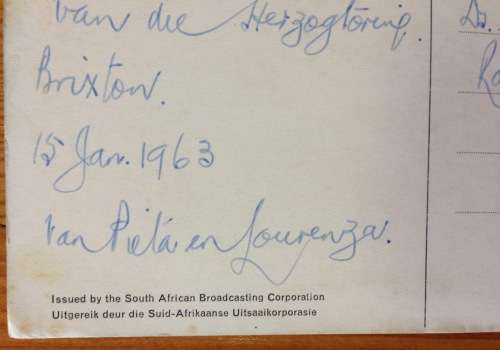 van die Herzogtoring.
Dr.
Brixton.
15 Jan. 1963
van Pieta en Lourenza.
Issued by the South African Broadcasting Corporation
Uitgereik deur die Suid-Afrikaanse Uitsaaikorporasie